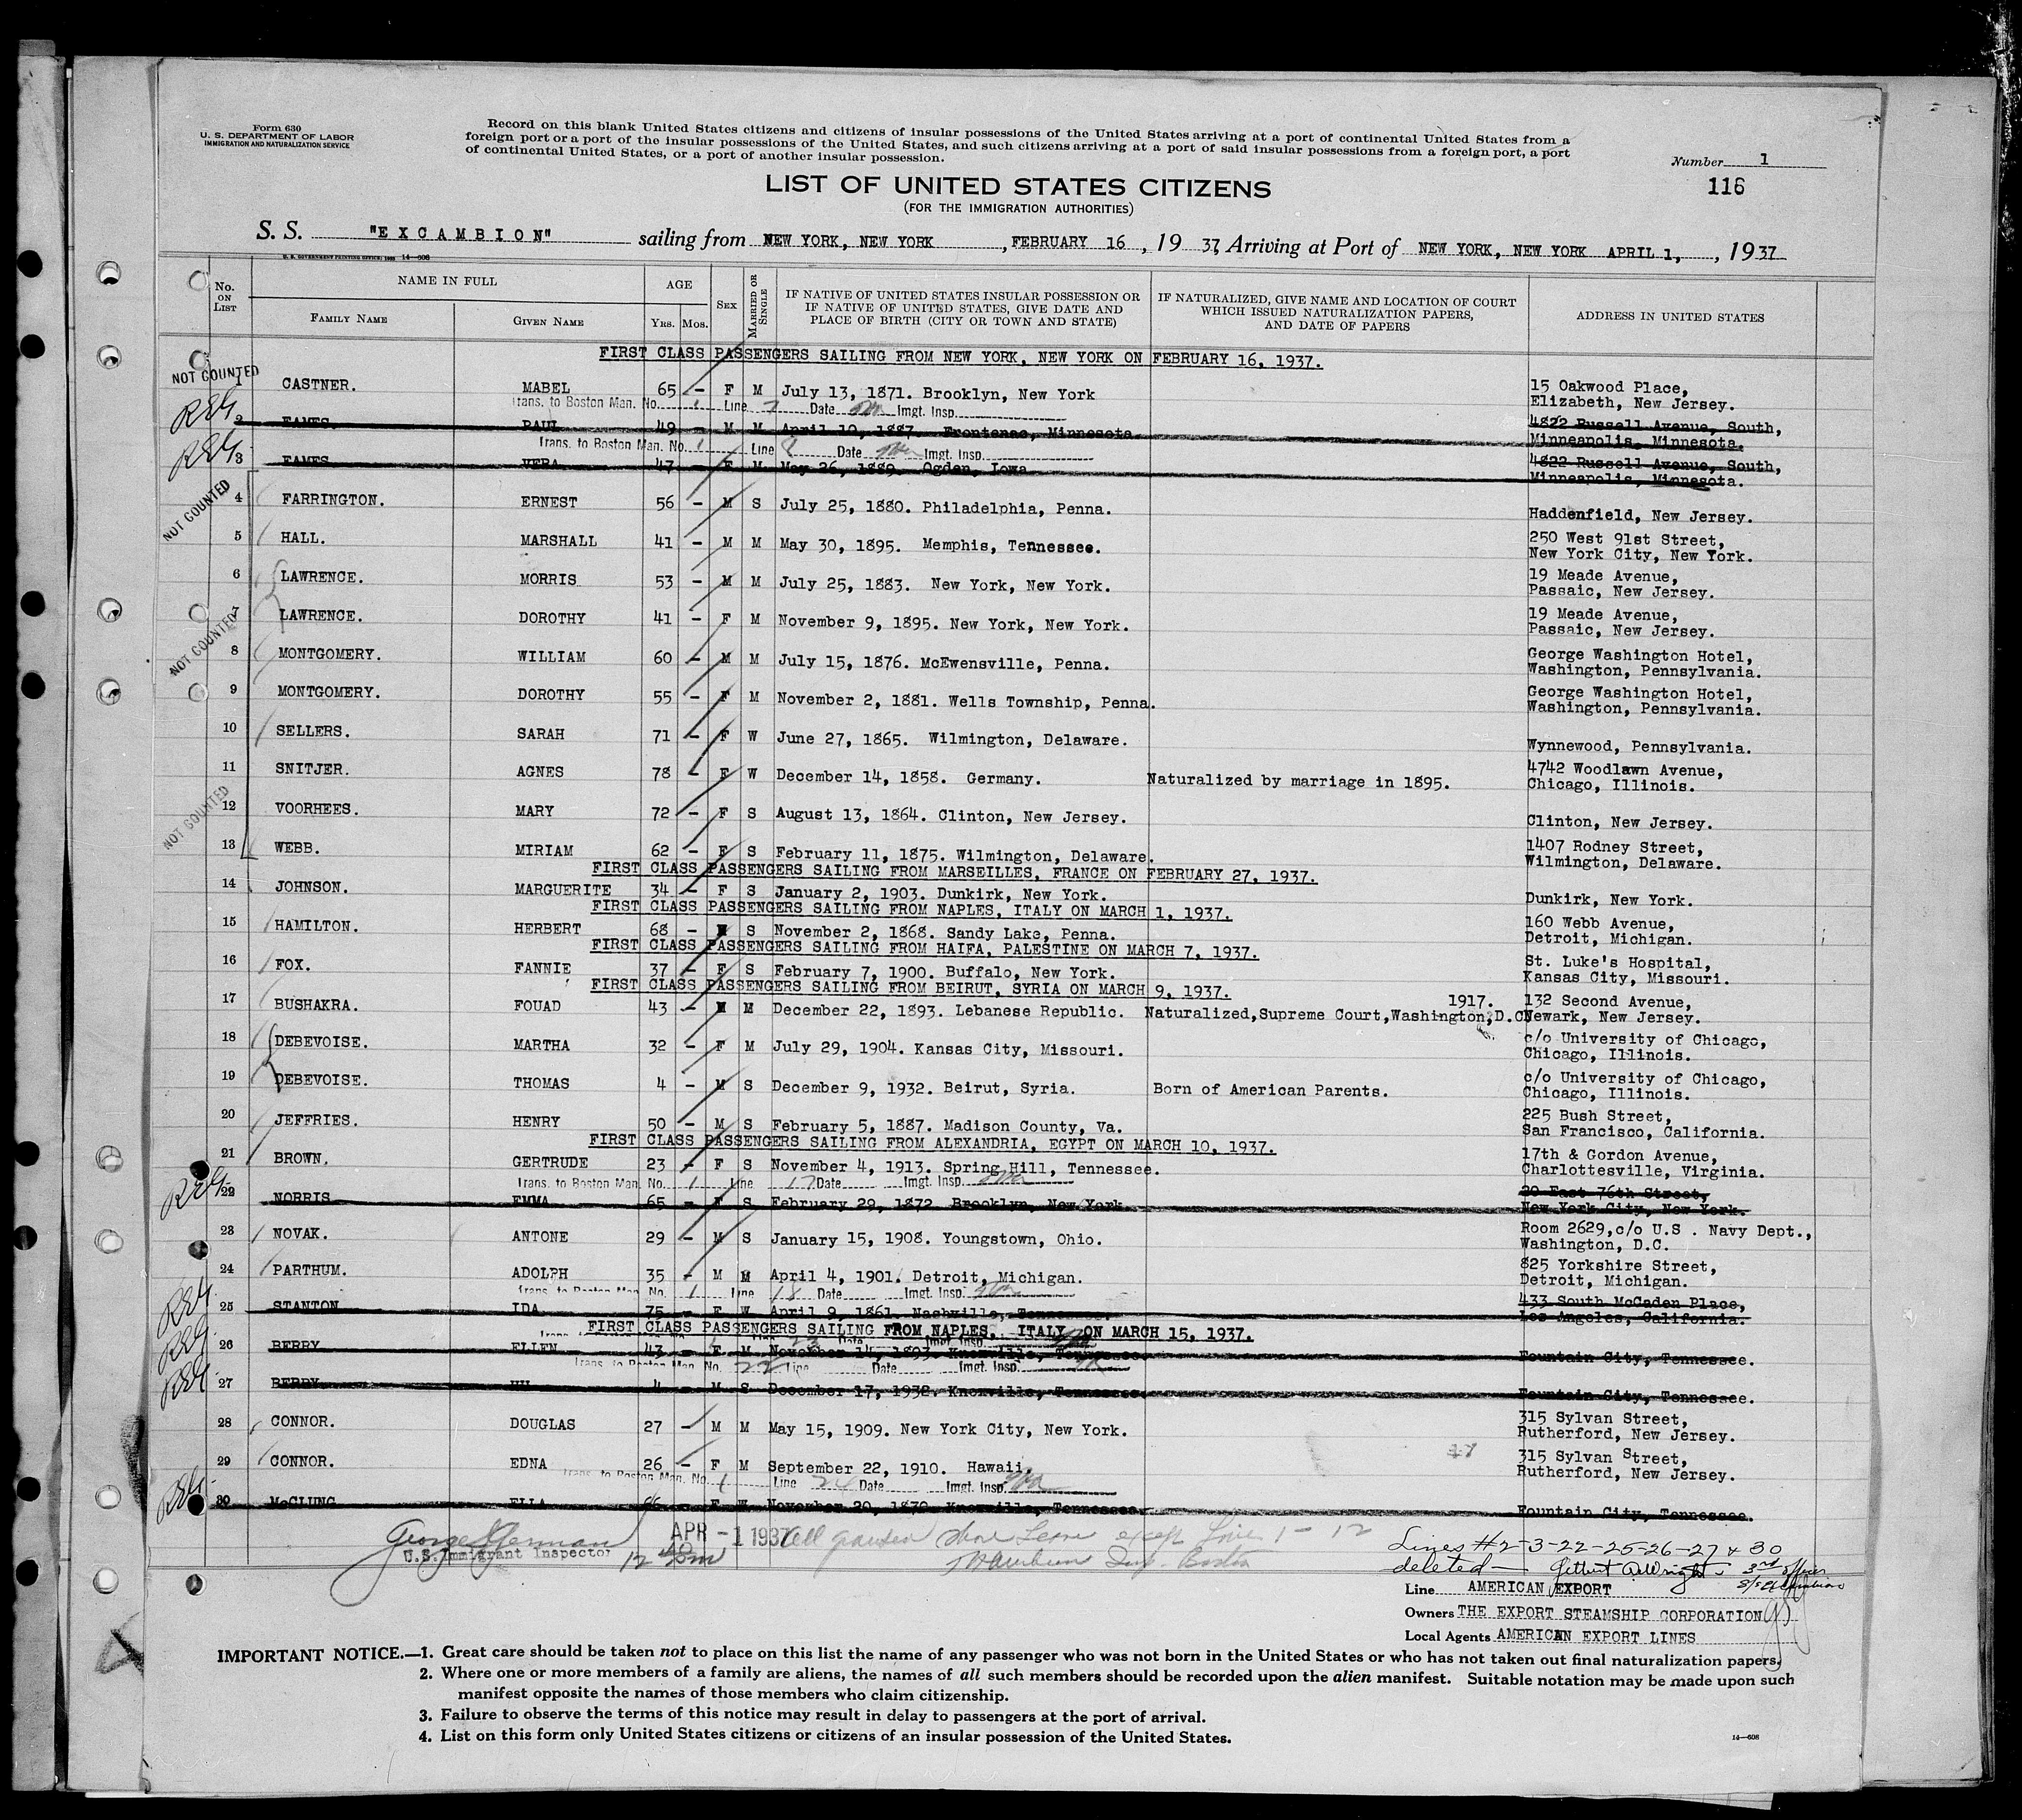 Form 630
U. S. DEPARTMENT OF LABOR
IMMIGRATION AND NATURALIZATION SERVICE
Record on this blank United States citizens and citizens of insular possessions of the United States arriving at a port of continental United States from a
foreign port or a port of the insular possessions of the United States, and such citizens arriving at a port of said insular possessions from a foreign port, a port
of continental United States, or a port of another insular possession.
Number 1
116
LIST OF UNITED STATES CITIZENS
(FOR THE IMMIGRATION AUTHORITIES)
S. S. "EXCAMBION" sailing from NEW YORK, NEW YORK , FEBRUARY 16 , 19 37, Arriving at Port of NEW YORK, NEW YORK APRIL 1, , 1937
U. S. GOVERNMENT PRINTING OFFICE: 14—608
No. ON LIST
NAME IN FULL
FAMILY NAME
GIVEN NAME
AGE
YRS. MOS.
SEX
MARRIED OR SINGLE
IF NATIVE OF UNITED STATES INSULAR POSSESSION OR
IF NATIVE OF UNITED STATES, GIVE DATE AND
PLACE OF BIRTH (CITY OR TOWN AND STATE)
IF NATURALIZED, GIVE NAME AND LOCATION OF COURT
WHICH ISSUED NATURALIZATION PAPERS,
AND DATE OF PAPERS
ADDRESS IN UNITED STATES
FIRST CLASS PASSENGERS SAILING FROM NEW YORK, NEW YORK ON FEBRUARY 16, 1937.
NOT COUNTED
1 CASTNER. MABEL 65 - F M July 13, 1871. Brooklyn, New York 15 Oakwood Place,
Elizabeth, New Jersey.
Trans. to Boston Man. No. 1 Line 7 Date Imgt. Insp.
2 EAMES. PAUL 49 - M M April 10, 1887. Frontenac, Minnesota 4822 Russell Avenue, South,
Minneapolis, Minnesota.
Trans. to Boston Man. No. 1 Line 8 Date Imgt. Insp.
3 EAMES. VERA 47 - F M May 26, 1889. Ogden, Iowa 4822 Russell Avenue, South,
Minneapolis, Minnesota.
NOT COUNTED
4 FARRINGTON. ERNEST 56 - M S July 25, 1880. Philadelphia, Penna. Haddenfield, New Jersey.
5 HALL. MARSHALL 41 - M M May 30, 1895. Memphis, Tennessee. 250 West 91st Street,
New York City, New York.
6 LAWRENCE. MORRIS 53 - M M July 25, 1883. New York, New York. 19 Meade Avenue,
Passaic, New Jersey.
7 LAWRENCE. DOROTHY 41 - F M November 9, 1895. New York, New York. 19 Meade Avenue,
Passaic, New Jersey.
NOT COUNTED
8 MONTGOMERY. WILLIAM 60 - M M July 15, 1876. McEwensville, Penna. George Washington Hotel,
Washington, Pennsylvania.
9 MONTGOMERY. DOROTHY 55 - F M November 2, 1881. Wells Township, Penna. George Washington Hotel,
Washington, Pennsylvania.
10 SELLERS. SARAH 71 - F W June 27, 1865. Wilmington, Delaware. Wynnewood, Pennsylvania.
11 SNITJER. AGNES 78 - F W December 14, 1858. Germany. Naturalized by marriage in 1895. 4742 Woodlawn Avenue,
Chicago, Illinois.
NOT COUNTED
12 VOORHEES. MARY 72 - F S August 13, 1864. Clinton, New Jersey. Clinton, New Jersey.
13 WEBB. MIRIAM 62 - F S February 11, 1875. Wilmington, Delaware. 1407 Rodney Street,
Wilmington, Delaware.
FIRST CLASS PASSENGERS SAILING FROM MARSEILLES, FRANCE ON FEBRUARY 27, 1937.
14 JOHNSON. MARGUERITE 34 - F S January 2, 1903. Dunkirk, New York. Dunkirk, New York.
FIRST CLASS PASSENGERS SAILING FROM NAPLES, ITALY ON MARCH 1, 1937.
15 HAMILTON. HERBERT 68 - M S November 2, 1868. Sandy Lake, Penna. 160 Webb Avenue,
Detroit, Michigan.
FIRST CLASS PASSENGERS SAILING FROM HAIFA, PALESTINE ON MARCH 7, 1937.
16 FOX. FANNIE 37 - F S February 7, 1900. Buffalo, New York. St. Luke's Hospital,
Kansas City, Missouri.
FIRST CLASS PASSENGERS SAILING FROM BEIRUT, SYRIA ON MARCH 9, 1937.
17 BUSHAKRA. FOUAD 43 - M M December 22, 1893. Lebanese Republic. Naturalized,Supreme Court,Washington,D.C. 1917. 132 Second Avenue,
Newark, New Jersey.
18 DEBEVOISE. MARTHA 32 - F M July 29, 1904. Kansas City, Missouri. c/o University of Chicago,
Chicago, Illinois.
19 DEBEVOISE. THOMAS 4 - M S December 9, 1932. Beirut, Syria. Born of American Parents. c/o University of Chicago,
Chicago, Illinois.
20 JEFFRIES. HENRY 50 - M S February 5, 1887. Madison County, Va. 225 Bush Street,
San Francisco, California.
FIRST CLASS PASSENGERS SAILING FROM ALEXANDRIA, EGYPT ON MARCH 10, 1937.
21 BROWN. GERTRUDE 23 - F S November 4, 1913. Spring Hill, Tennessee. 17th & Gordon Avenue,
Charlottesville, Virginia.
Trans. to Boston Man. No. 1 Line 17 Date Imgt. Insp.
22 NORRIS EMMA 65 - F S February 29, 1872 Brooklyn, New York 20 East 76th Street,
New York City, New York.
23 NOVAK. ANTONE 29 - M S January 15, 1908. Youngstown, Ohio. Room 2629,c/o U.S . Navy Dept.,
Washington, D.C.
24 PARTHUM. ADOLPH 35 - M M April 4, 1901. Detroit, Michigan. 825 Yorkshire Street,
Detroit, Michigan.
Trans. to Boston Man. No. 1 Line 18 Date Imgt. Insp.
25 STANTON IDA 75 - F W April 9, 1861. Nashville, Tennessee. 433 South McCaden Place,
Los Angeles, California.
FIRST CLASS PASSENGERS SAILING FROM NAPLES, ITALY ON MARCH 15, 1937.
26 BERRY ELLEN 43 - F M November 14, 1893 Knoxville, Tennessee Fountain City, Tennessee.
Trans. to Boston Man. No. 22 Line Date Imgt. Insp.
27 BERRY 4 - M S December 17, 1932. Knoxville, Tennessee Fountain City, Tennessee.
28 CONNOR. DOUGLAS 27 - M M May 15, 1909. New York City, New York. 315 Sylvan Street,
Rutherford, New Jersey.
29 CONNOR. EDNA 26 - F M September 22, 1910. Hawaii. 315 Sylvan Street,
Rutherford, New Jersey.
Trans. to Boston Man. No. 1 Line Date Imgt. Insp.
30 McCLUNG ELLA 66 - F W November 20, 1870 Knoxville, Tennessee Fountain City, Tennessee.
U.S. Immigrant Inspector
APR -1 1937
except Line 1 - 12
Lines #2-3-22-25-26-27 & 30
deleted
3rd officer
Line AMERICAN EXPORT
Owners THE EXPORT STEAMSHIP CORPORATION
Local Agents AMERICAN EXPORT LINES
IMPORTANT NOTICE.—1. Great care should be taken not to place on this list the name of any passenger who was not born in the United States or who has not taken out final naturalization papers.
2. Where one or more members of a family are aliens, the names of all such members should be recorded upon the alien manifest. Suitable notation may be made upon such
manifest opposite the names of those members who claim citizenship.
3. Failure to observe the terms of this notice may result in delay to passengers at the port of arrival.
4. List on this form only United States citizens or citizens of an insular possession of the United States.
14—608